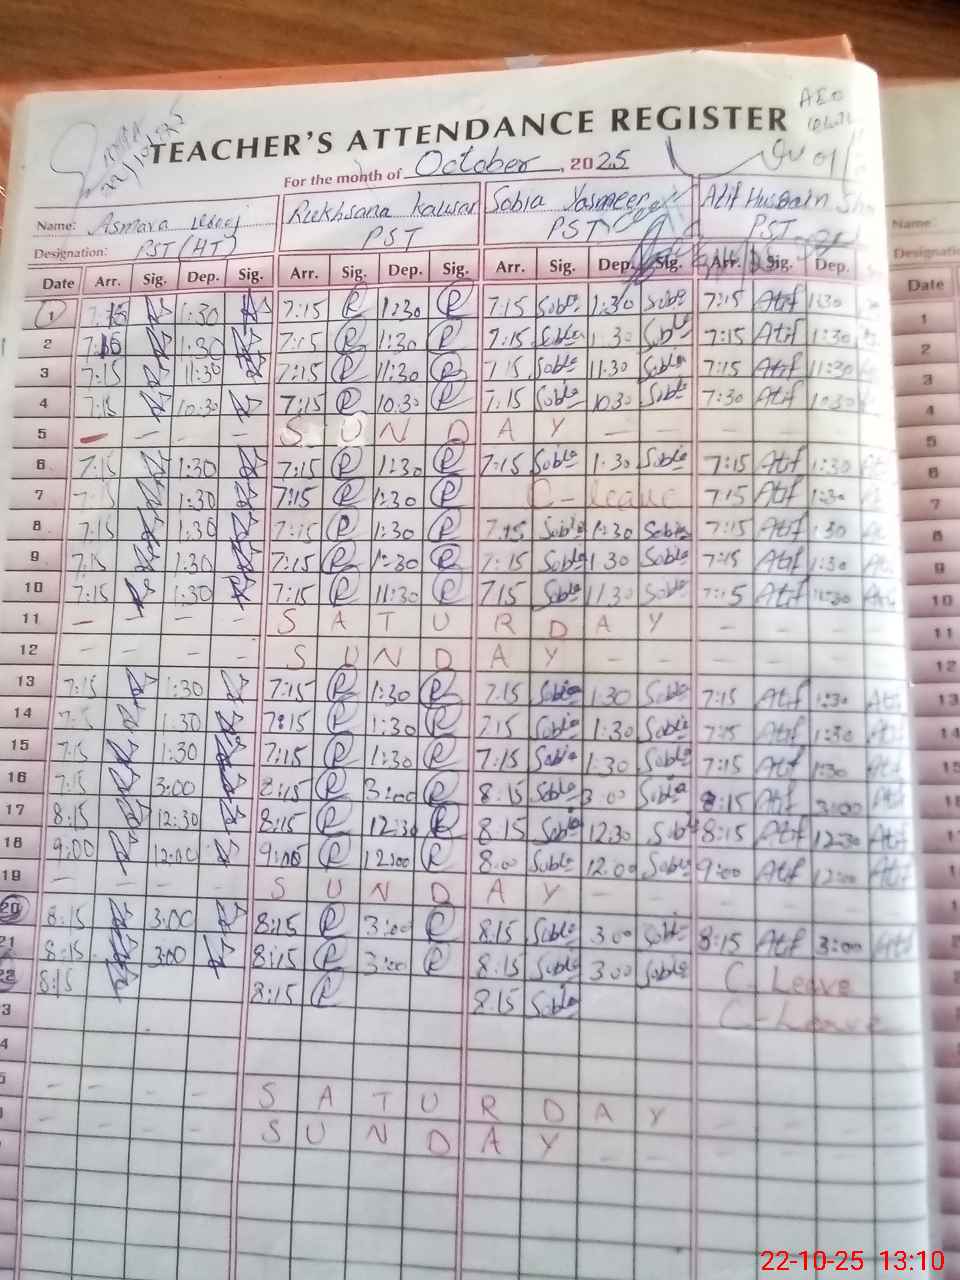 AEO
TEACHER'S ATTENDANCE REGISTER
For the month of October, 2025
Name: Asmara Rukhsana Kausar Sobia Yasmeen Atif Hussain
Designation: PST (HT) PST PST PST
Date Arr. Sig. Dep. Sig. Arr. Sig. Dep. Sig. Arr. Sig. Dep. Sig. Arr. Sig. Dep.
1 7:15 1:30 7:15 R 1:30 R 7:15 Sobia 1:30 Sobia 7:15 Atif 1:30
2 7:15 1:30 7:15 R 1:30 R 7:15 Sobia 1:30 Sobia 7:15 Atif 1:30
3 7:15 11:30 7:15 R 11:30 R 7:15 Sobia 11:30 Sobia 7:15 Atif 11:30
4 7:15 10:30 7:15 R 10:30 R 7:15 Sobia 10:30 Sobia 7:30 Atif 10:30
5 — — — — S U N D A Y — — — — —
6 7:15 1:30 7:15 R 1:30 R 7:15 Sobia 1:30 Sobia 7:15 Atif 1:30
7 7:15 1:30 7:15 R 1:30 R C-leave 7:15 Atif 1:30
8 7:15 1:30 7:15 R 1:30 R 7:15 Sobia 1:30 Sobia 7:15 Atif 1:30
9 7:15 1:30 7:15 R 1:30 R 7:15 Sobia 1:30 Sobia 7:15 Atif 1:30
10 7:15 1:30 7:15 R 11:30 R 7:15 Sobia 11:30 Sobia 7:15 Atif 11:30
11 — — — — S A T U R D A Y — — —
12 — — — — S U N D A Y — — — — —
13 7:15 1:30 7:15 R 1:30 R 7:15 Sobia 1:30 Sobia 7:15 Atif 1:30 Atif
14 7:15 1:30 7:15 R 1:30 R 7:15 Sobia 1:30 Sobia 7:15 Atif 1:30 Atif
15 7:15 1:30 7:15 R 1:30 R 7:15 Sobia 1:30 Sobia 7:15 Atif 1:30 Atif
16 7:15 3:00 8:15 R 3:00 R 8:15 Sobia 3:00 Sobia 8:15 Atif 3:00 Atif
17 8:15 12:30 8:15 R 12:30 R 8:15 Sobia 12:30 Sobia 8:15 Atif 12:30 Atif
18 9:00 12:00 9:00 R 12:00 R 8:00 Sobia 12:00 Sobia 9:00 Atif 12:00 Atif
19 — — — — S U N D A Y — — — —
20 8:15 3:00 8:15 R 3:00 R 8:15 Sobia 3:00 Sobia 8:15 Atif 3:00 Atif
21 8:15 3:00 8:15 R 3:00 R 8:15 Sobia 3:00 Sobia C-Leave
22 8:15 8:15 R 8:15 Sobia C-Leave
3
4
5 — — — — S A T U R D A Y
— — — — S U N D A Y — —
Name
Designation
Date
1
2
3
4
5
6
7
8
9
10
11
12
13
14
22-10-25 13:10